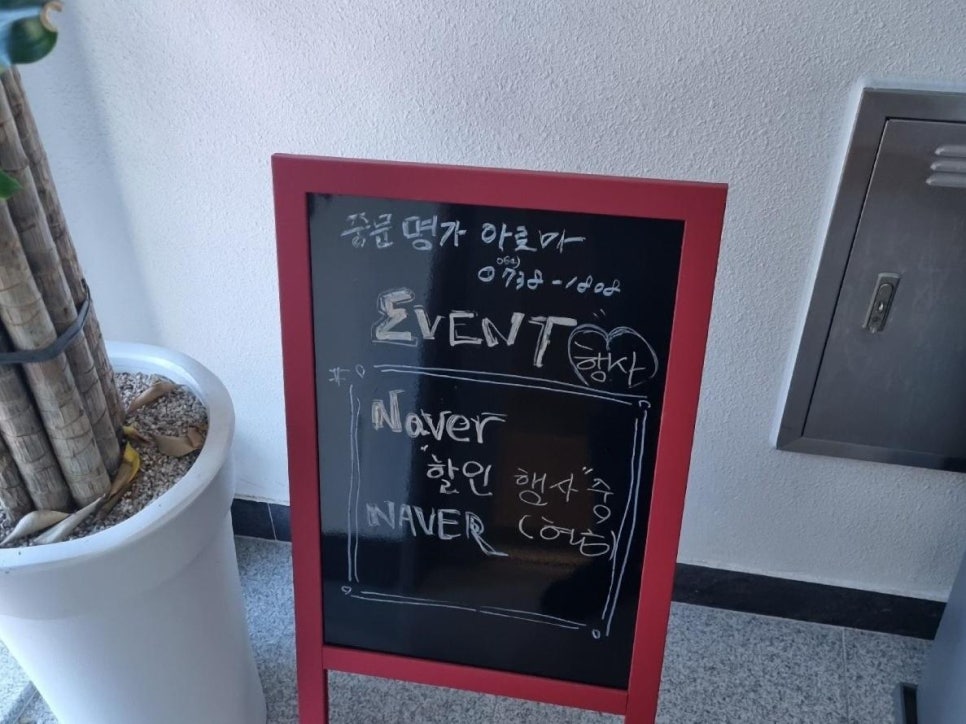 중문 명가 아로마
064)
0738-1808
EVENT
행사
Naver
"할인 행사" 중
NAVER